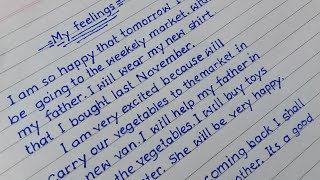 My feelings
I am so happy that tomorrow I
be going to the weekly market with
my father. I will wear my new shirt.
that I bought last November.
I am very excited because will
carry our vegetables to the market in
new van. I will help my father in
the vegetables. I will buy toys
She will be very happy.
coming back I shall
It's a good